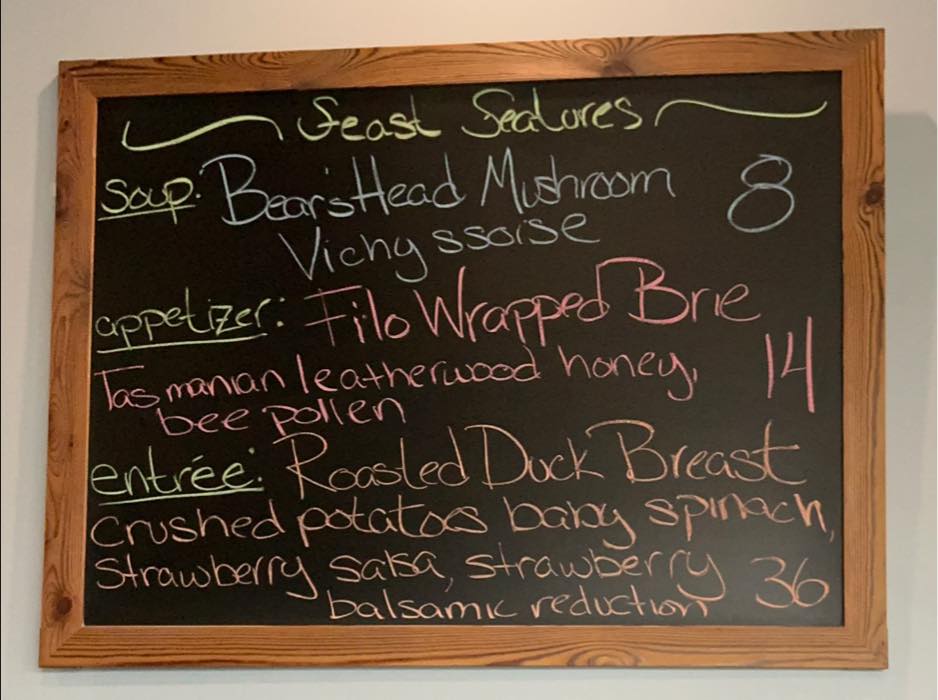 Feast Features
Soup: Bear's Head Mushroom 8
Vichyssoise
appetizer: Filo Wrapped Brie
Tasmanian leatherwood honey, 14
bee pollen
entrée: Roasted Duck Breast
Crushed potatoes baby spinach,
Strawberry salsa, strawberry 36
balsamic reduction